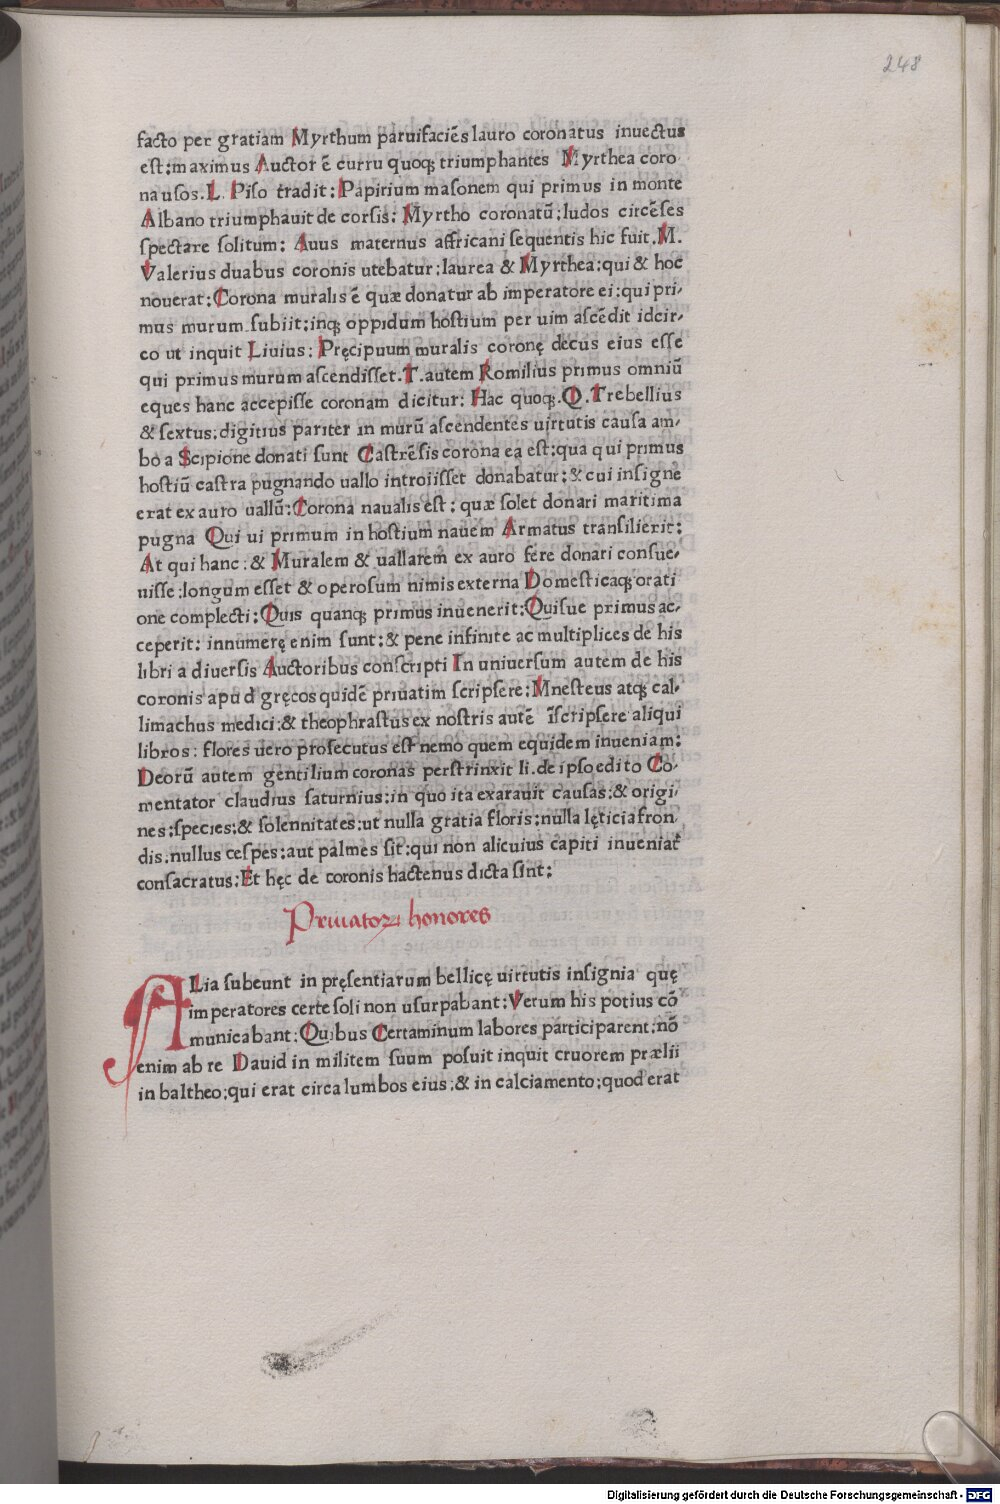 248
facto per gratiam Myrthum paruifaciēs lauro coronatus inuectus
est:maximus Auctor ē curru quoqꝫ triumphantes Myrthea coro
na usos.L. Piso tradit:Papirium masonem qui primus in monte
Albano triumphauit de corsis: Myrtho coronatū;ludos circēses
spectare solitum: Auus maternus affricani sequentis hic fuit.M.
Valerius duabus coronis utebatur:laurea & Myrthea:qui & hoc
nouerat:Corona muralis ē quæ donatur ab imperatore ei:qui pri/
mus murum subiit:inqꝫ oppidum hostium per uim ascēdit idcir/
co ut inquit Liuius: Pręcipuum muralis coronę decus eius esse
qui primus murum ascendisset.T.autem Romilius primus omniū
eques hanc accepisse coronam dicitur: Hac quoqꝫ.Q.Trebellius
& sextus;digitius pariter in murū ascendentes uirtutis causa am/
bo a Scipione donati sunt Castrēsis corona ea est:qua qui primus
hostiū castra pugnando uallo introiisset donabatur:& cui insigne
erat ex auro uallū:Corona naualis est: quæ solet donari maritima
pugna Qui ui primum in hostium nauem Armatus transilierit:
At qui hanc:& Muralem & uallarem ex auro fere donari consue/
uisse:longum esset & operosum nimis externa Domesticaqꝫ orati
one complecti:Quis quanqꝫ primus inuenerit:Quisue primus ac/
ceperit: innumerę enim sunt:& pene infinite ac multiplices de his
libri a diuersis Auctoribus conscripti In uniuersum autem de his
coronis apud gręcos quidē priuatim scripsere:Mnesteus atqꝫ cal/
limachus medici:& theophrastus ex nostris autē īscripsere aliqui
libros: flores uero prosecutus est nemo quem equidem inueniam:
Deorū autem gentilium coronas perstrinxit li.de ipso edito Co/
mentator claudius saturnius:in quo ita exarauit causas:& origi/
nes;species;& solennitates:ut nulla gratia floris;nulla lęticia fron
dis.nullus cespes;aut palmes sit:qui non alicuius capiti inueniat̄
consacratus:Et hęc de coronis hactenus dicta sint:
Priuatoꝝ honores
ALia subeunt in pręsentiarum bellicę uirtutis insignia quę
imperatores certe soli non usurpabant:Verum his potius cō
municabant:Quibus Certaminum labores participarent:nō
enim ab re Dauid in militem suum posuit inquit cruorem prælii
in baltheo;qui erat circa lumbos eius:& in calciamento;quod erat
Digitalisierung gefördert durch die Deutsche Forschungsgemeinschaft - DFG